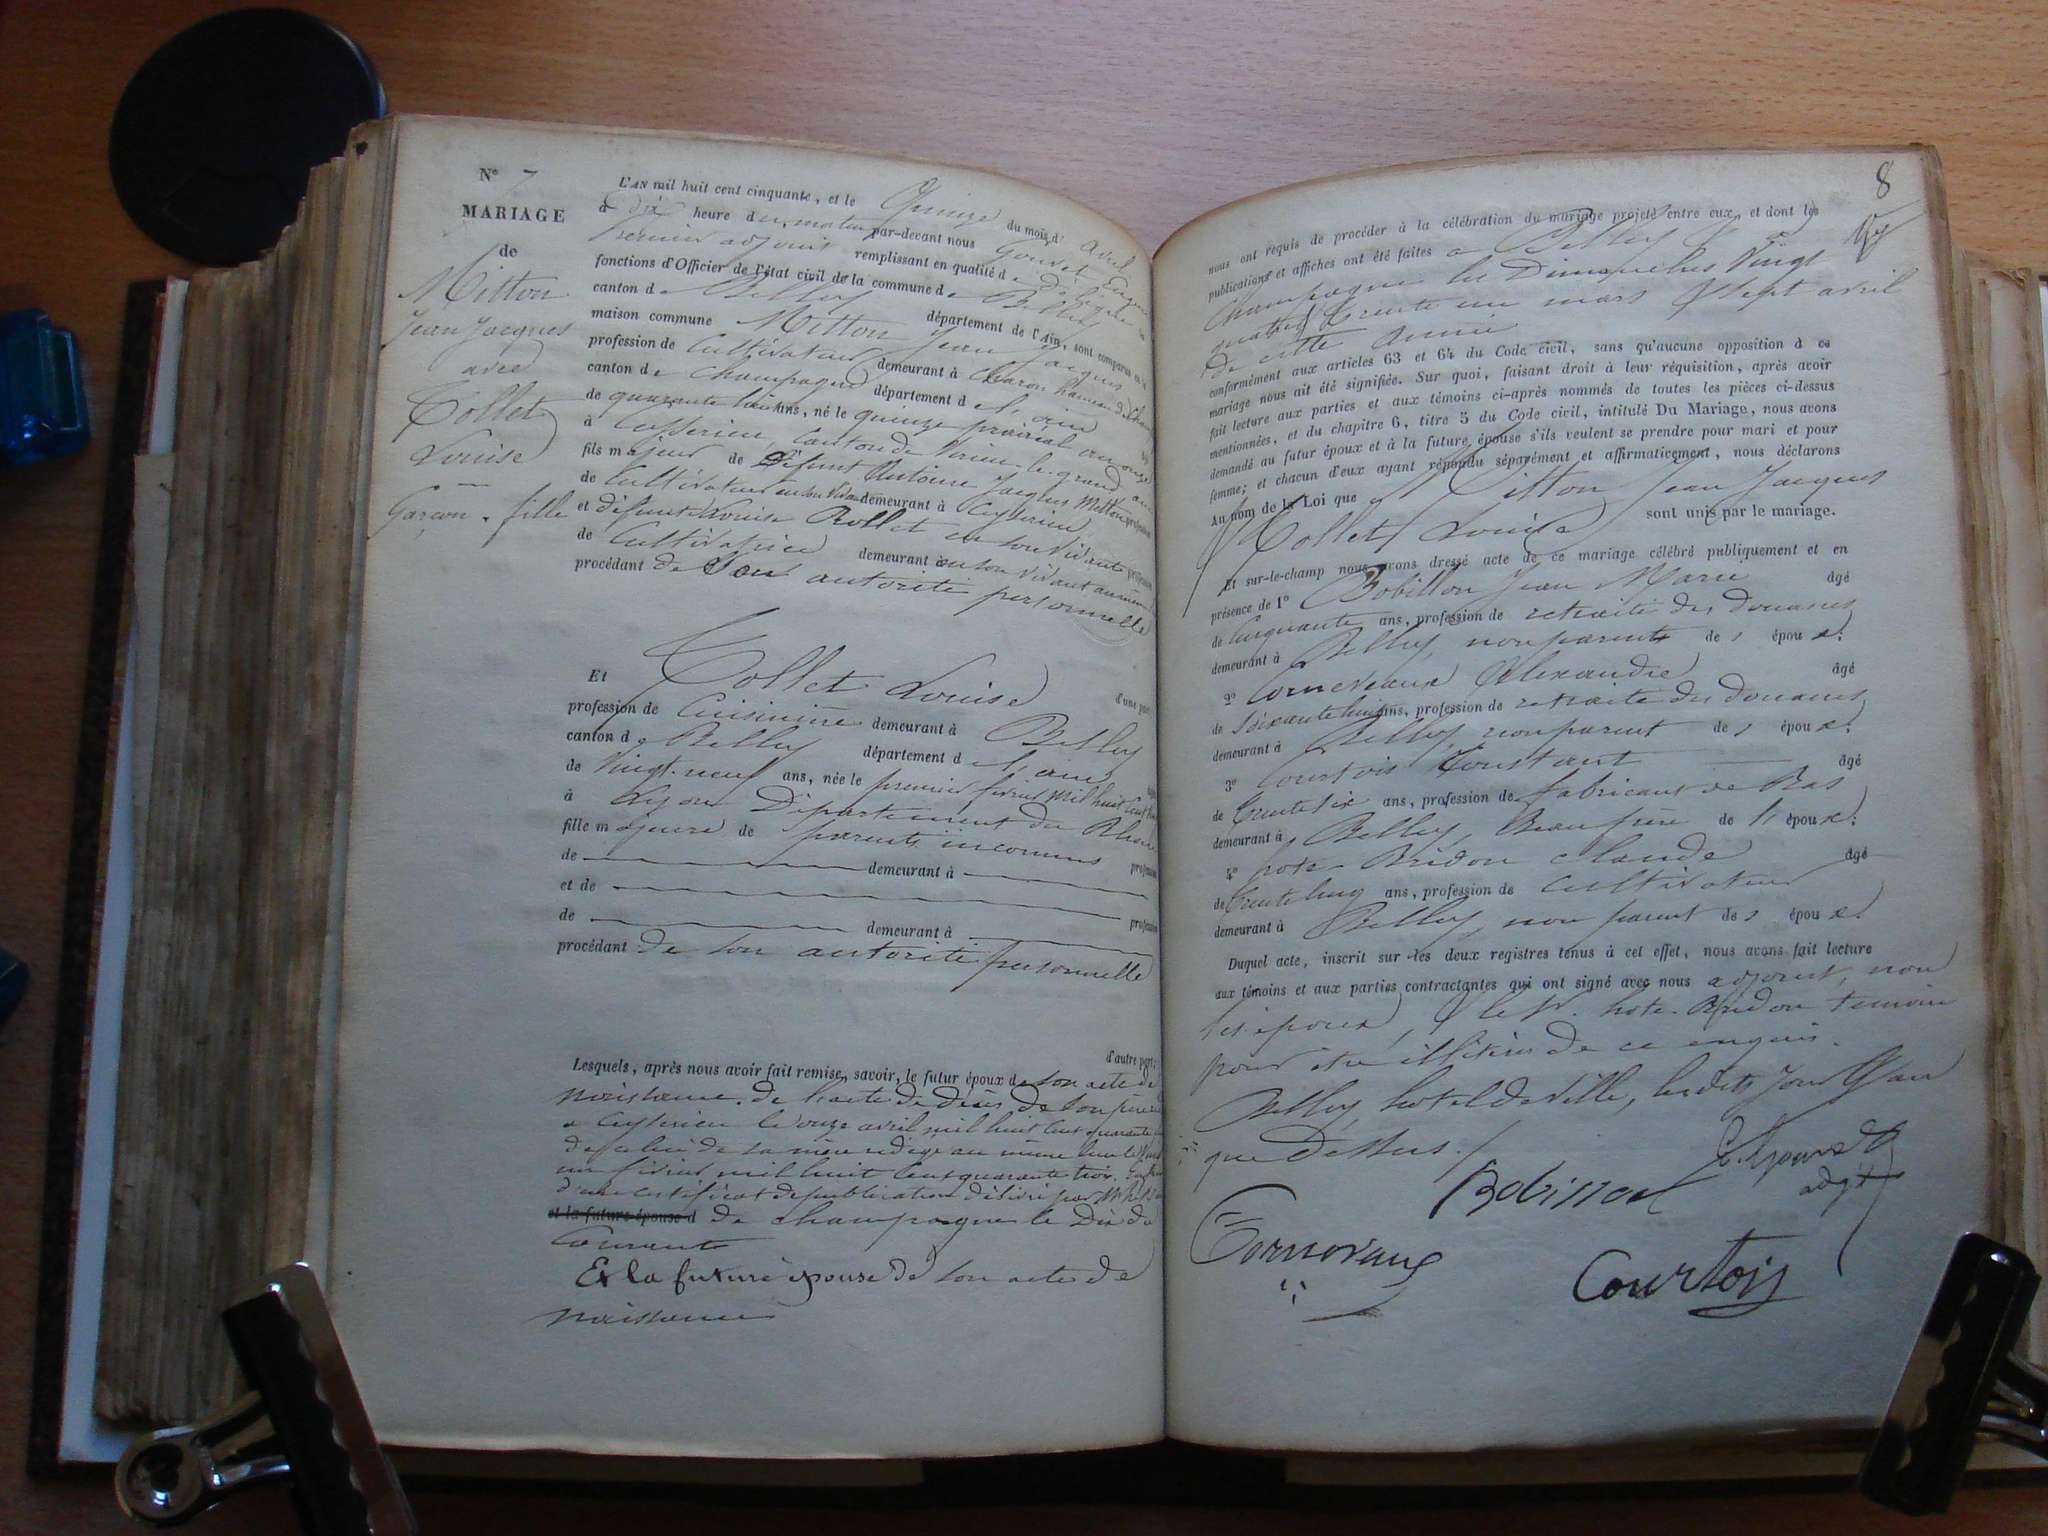 N° 7
MARIAGE
de
Mitton
Jean Jacques
avec
Collet
Louise
Garçon. fille
L'AN mil huit cent cinquante, et le Quinze du mois d'avril
à dix heure du matin par-devant nous Gouvet
premier adjoint remplissant en qualité de délégué
fonctions d'Officier de l'état civil de la commune de Belley
canton de Belley département de l'Ain, sont comparus en la
maison commune Mitton Jean Jacques
profession de Cultivateur demeurant à hameau de
canton de Champagne département de l'ain
de quarante huit ans, né le quinze prairial an onze
à Ceyzerieu, Canton de Virieu-le-grand
fils majeur de Défunt Antoine Jacques Mitton profession
de Cultivateur en son vivant demeurant à Ceyzerieu
et défunte Louise Rollet en son vivant profession
de Cultivatrice demeurant en son vivant
procédant de Son autorité personnelle
d'une part;
Et Collet Louise
profession de Cuisinière demeurant à Belley
canton de Belley département de l'ain
de Vingt-neuf ans, née le premier février mil huit cent
à Lyon Département du Rhône
fille majeure de parents inconnus profession
de demeurant à
et de profession
de demeurant à
procédant de son autorité personnelle
d'autre part;
Lesquels, après nous avoir fait remise, savoir, le futur époux de son acte de
naissance. de l'acte de décès de son père
à Ceyzerieu le onze avril mil huit cent quarante
de celui de sa mère rédigé au même lieu le
un février mil huit cent quarante trois.
d'un certificat de publication délivré par
et la future épouse d de champagne le Dix du
Courant
Et la future épouse de son acte de
naissance
8
nous ont requis de procéder à la célébration du mariage projeté entre eux, et dont les
publications et affiches ont été faites à Belley &
Champagne les Dimanches Vingt
quatre, trente un mars & sept avril
de cette année
conformément aux articles 63 et 64 du Code civil, sans qu'aucune opposition à ce
mariage nous ait été signifiée. Sur quoi, faisant droit à leur réquisition, après avoir
fait lecture aux parties et aux témoins ci-après nommés de toutes les pièces ci-dessus
mentionnées, et du chapitre 6, titre 5 du Code civil, intitulé Du Mariage, nous avons
demandé au futur époux et à la future épouse s'ils veulent se prendre pour mari et pour
femme; et chacun d'eux ayant répondu séparément et affirmativement, nous déclarons
Au nom de la Loi que Mitton Jean Jacques
& Collet Louise sont unis par le mariage.
Et sur-le-champ nous avons dressé acte de ce mariage célébré publiquement et en
présence de 1° Bobillon Jean Marie âgé
de Cinquante ans, profession de retraité des douanes
demeurant à Belley, non parent des époux.
2° Corneveaux Alexandre âgé
de Soixante huit ans, profession de retraité des douanes
demeurant à Belley, non parent des époux.
3° Courtois Constant âgé
de trente six ans, profession de fabricant de Bas
demeurant à Belley, Beaufrère de l'époux.
4° hote-Bridon claude âgé
de trente cinq ans, profession de cultivateur
demeurant à Belley, non parent des époux.
Duquel acte, inscrit sur les deux registres tenus à cet effet, nous avons fait lecture
aux témoins et aux parties contractantes qui ont signé avec nous adjoint, non
les époux, & le Sr. hote-Bridon témoin
pour être illitérés de ce enquis.
Belley, hotel de Ville, lesdits jour & an
que dessus.
adjt
Courtois